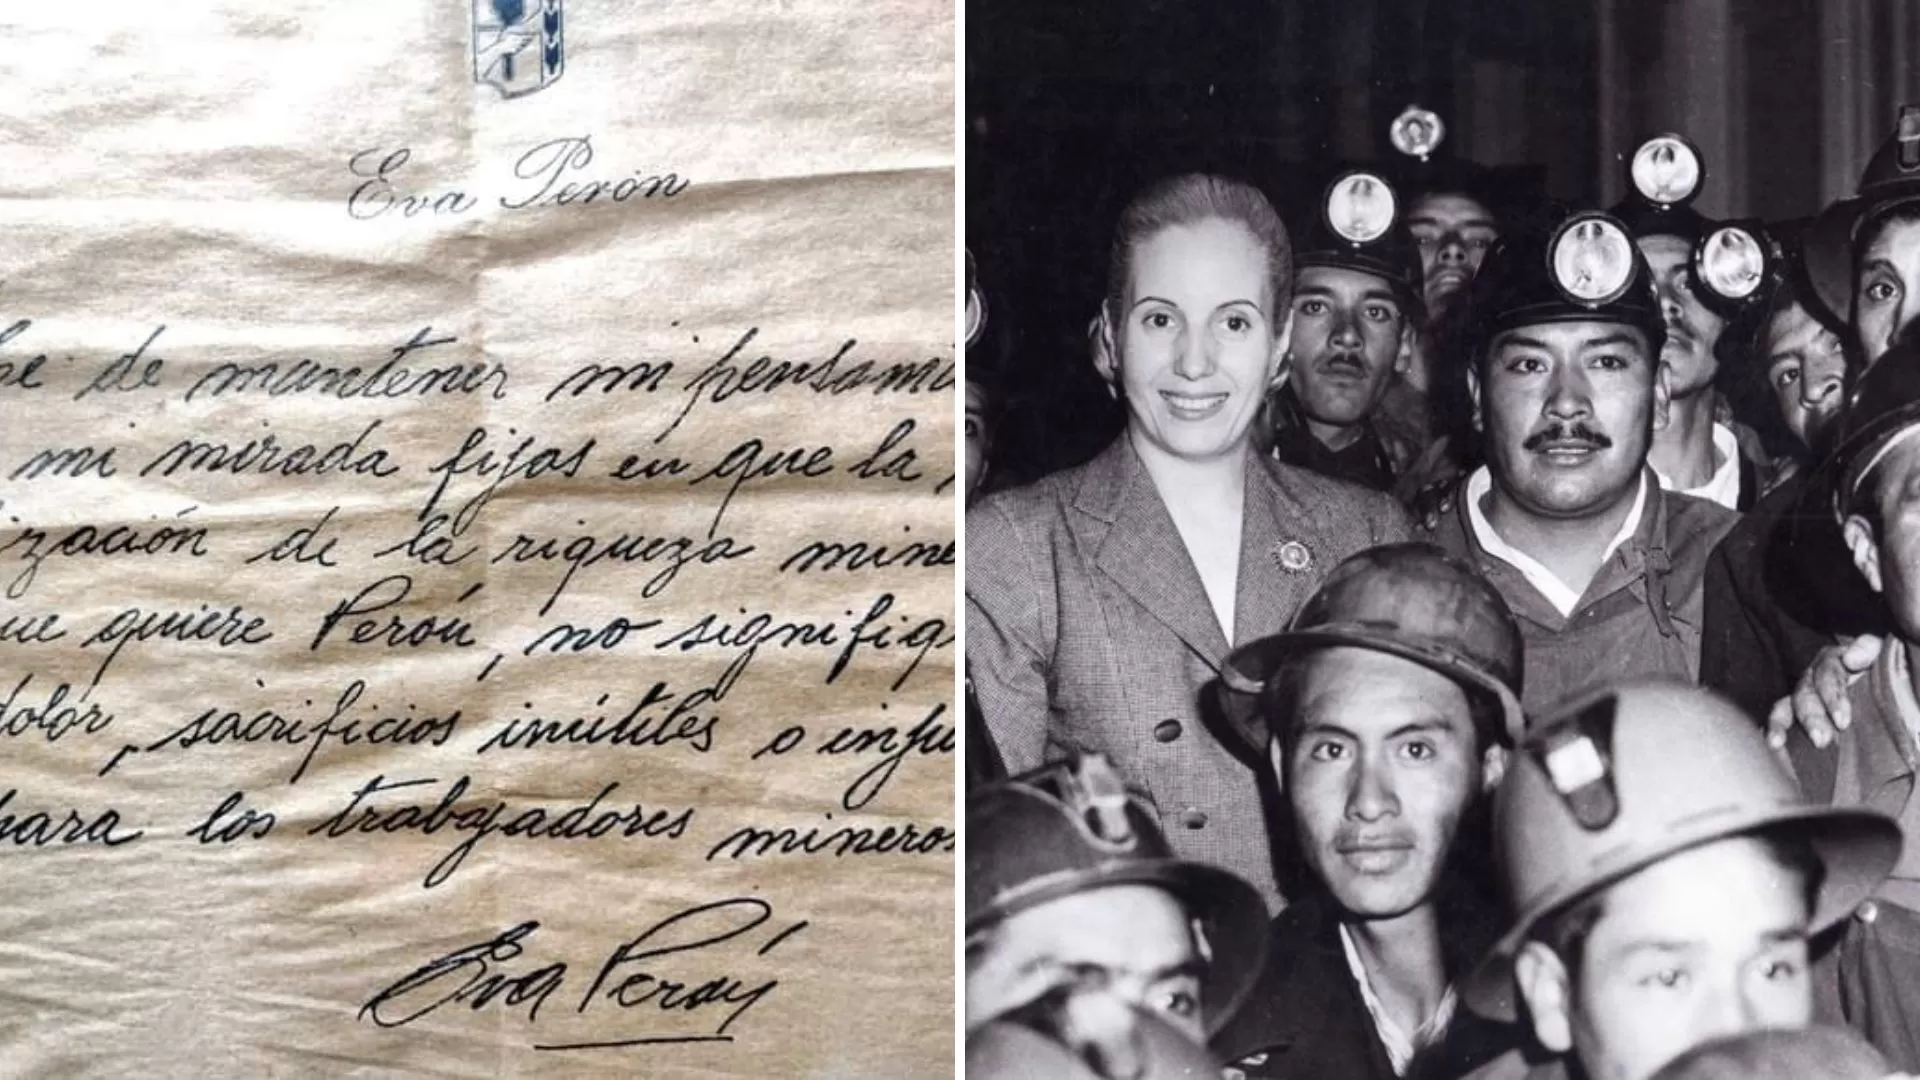 Eva Perón
he de mantener mi pensami
mi mirada fijos en que la
ización de la riqueza mine
ue quiere Perón, no signifiq
dolor, sacrificios inútiles o infu
para los trabajadores mineros
Eva Perón